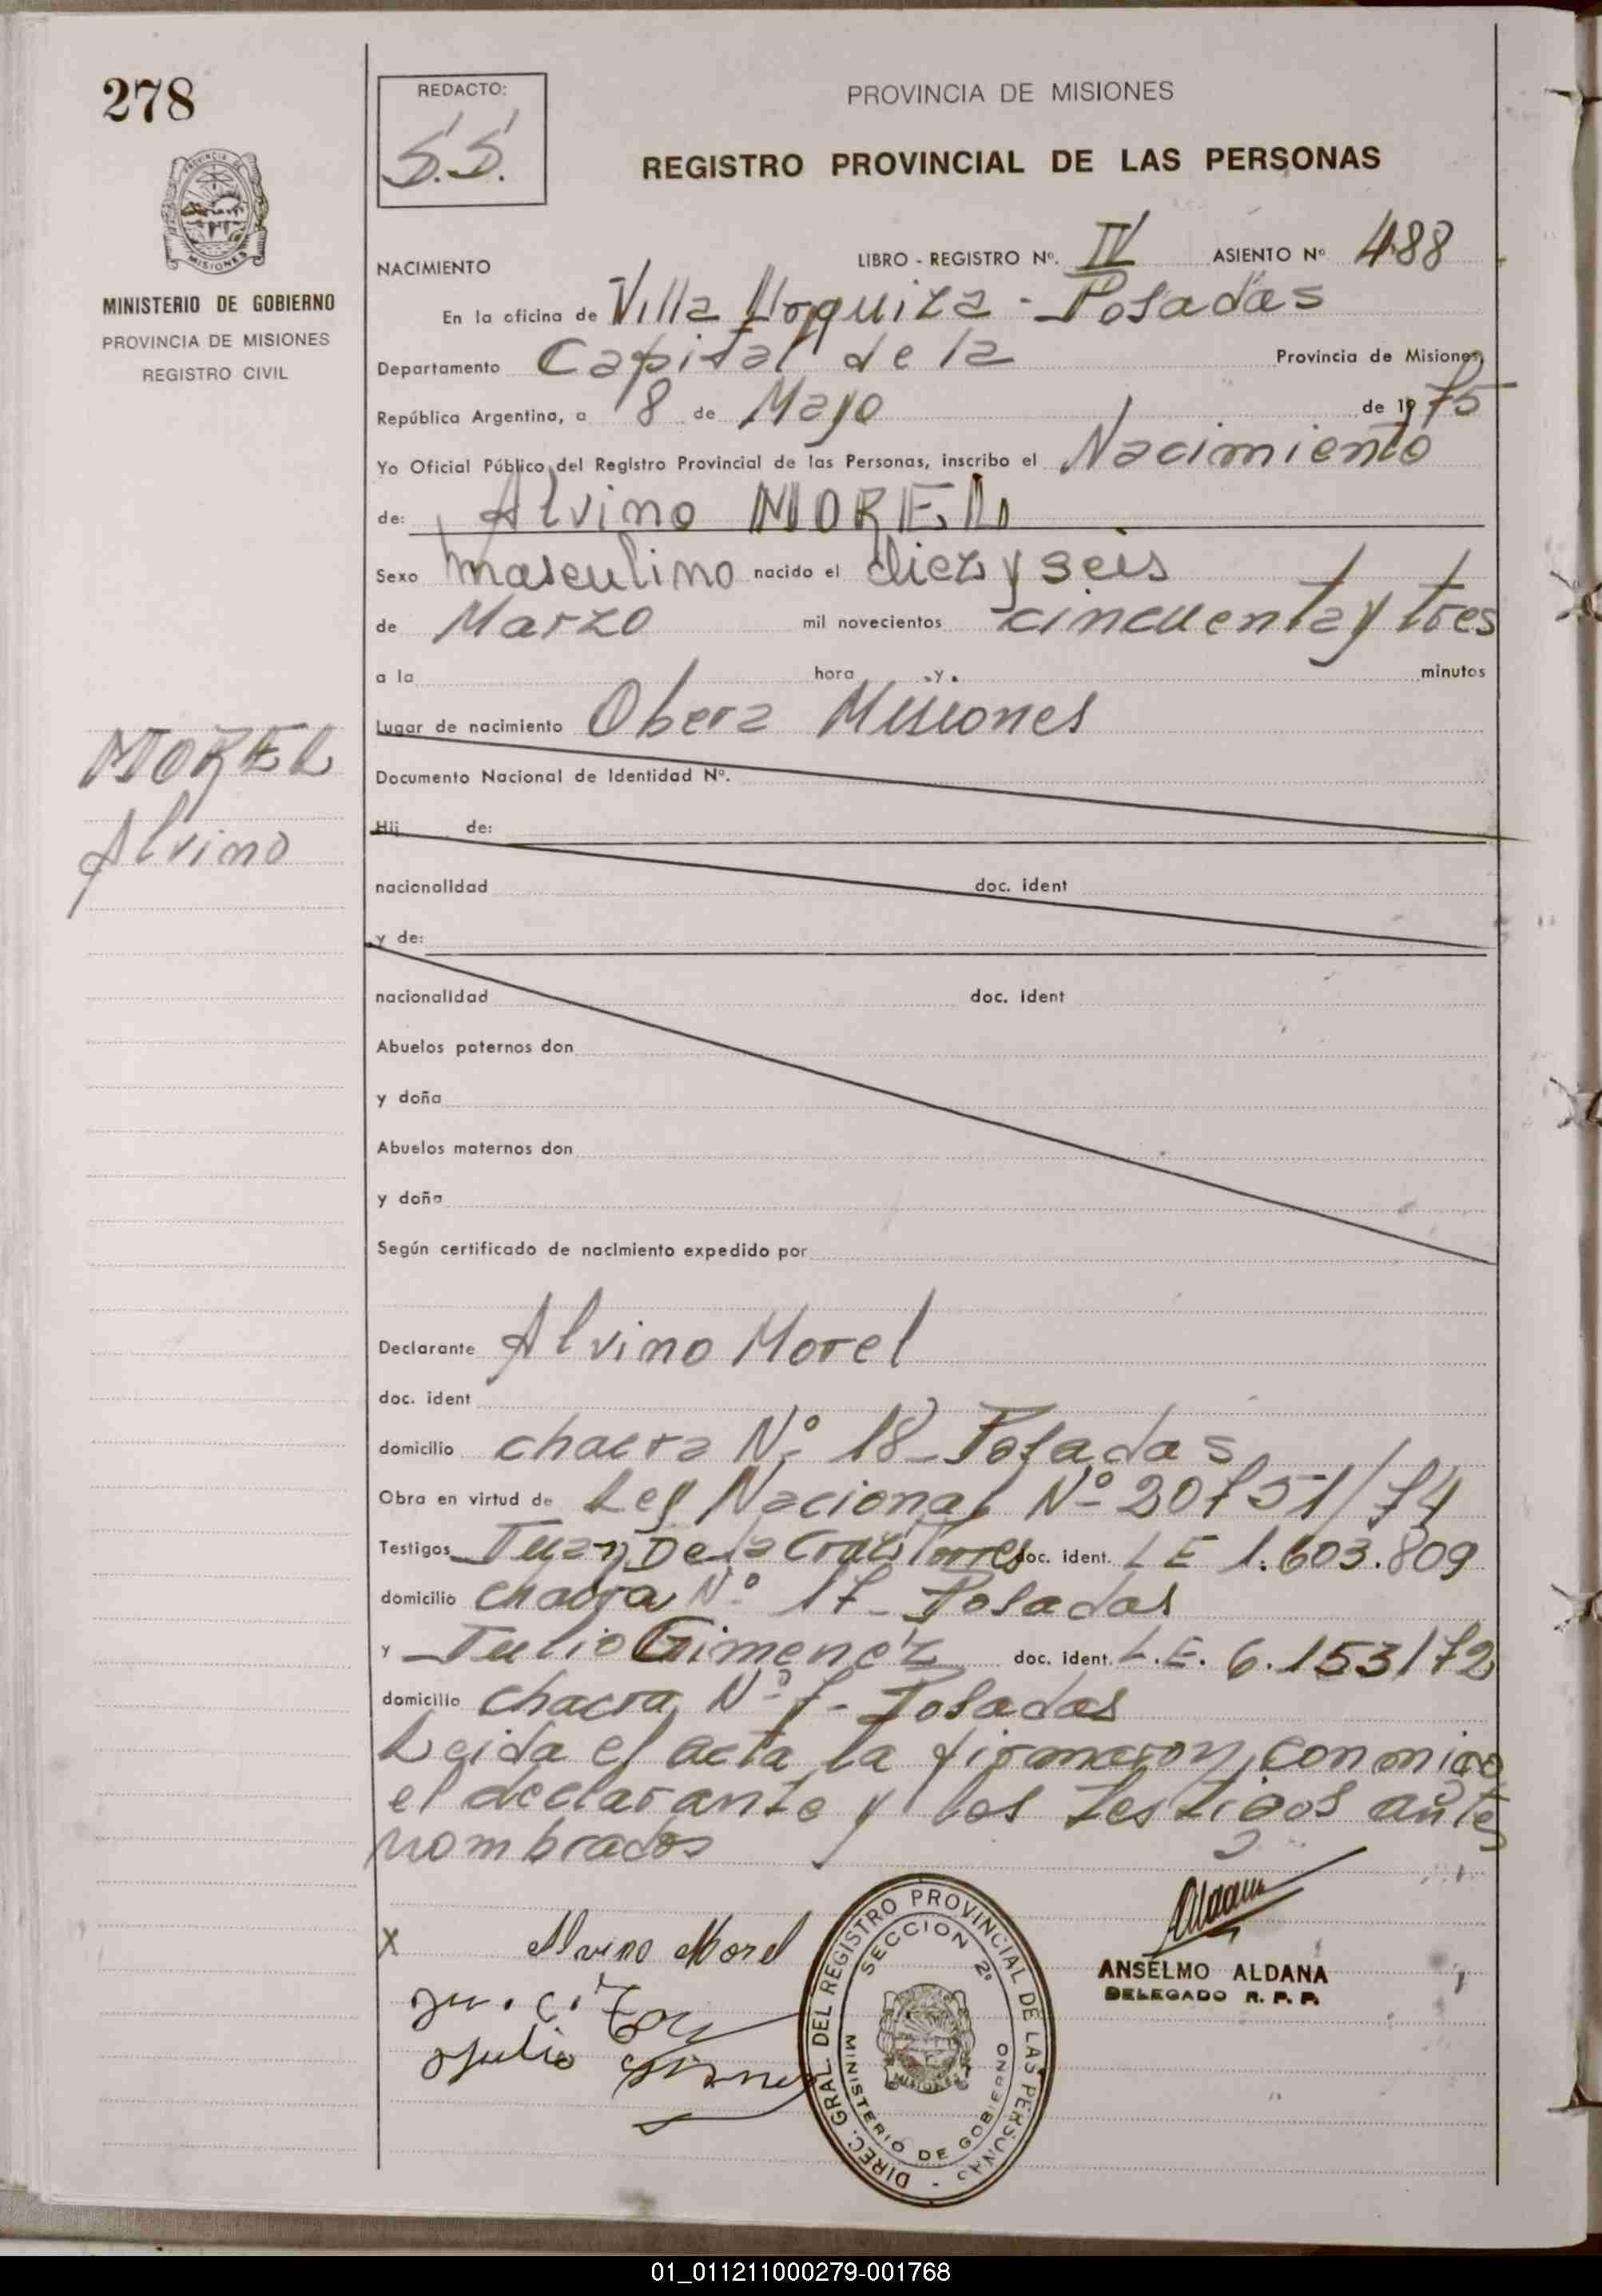 278
REDACTO:
S.S.
PROVINCIA DE MISIONES
REGISTRO PROVINCIAL DE LAS PERSONAS
MISIONES
MINISTERIO DE GOBIERNO
PROVINCIA DE MISIONES
REGISTRO CIVIL
NACIMIENTO LIBRO - REGISTRO Nº. IV ASIENTO Nº 488
En la oficina de Villa Urquiza - Posadas
Departamento Capital de la Provincia de Misiones,
República Argentina, a 8 de Mayo de 1975
Yo Oficial Público del Registro Provincial de las Personas, inscribo el Nacimiento
de: Alvino MOREL
Sexo masculino nacido el diez y seis
de Marzo mil novecientos cincuenta y tres
a la hora y minutos
Lugar de nacimiento Obera Misiones
MOREL
Alvino
Documento Nacional de Identidad Nº.
Hij de:
nacionalidad doc. ident
y de:
nacionalidad doc. ident
Abuelos paternos don
y doña
Abuelos maternos don
y doña
Según certificado de nacimiento expedido por
Declarante Alvino Morel
doc. ident
domicilio chacra Nº 18 - Posadas
Obra en virtud de Ley Nacional Nº 20751/74
Testigos Juan De la Cruz Torres doc. ident. L E 1.603.809
domicilio chacra Nº 17 - Posadas
y Julio Gimenez doc. ident. L.E. 6.153172
domicilio chacra Nº 7 - Posadas
Leida el acta la firmaron, conmigo
el declarante y los testigos antes
nombrados
X Alvino Morel
Julio
DIREC. GRAL. DEL REGISTRO PROVINCIAL DE LAS PERSONAS -
SECCION 2º
MISIONES
MINISTERIO DE GOBIERNO
Aldana
ANSELMO ALDANA
DELEGADO R. P. P.
01_011211000279-001768